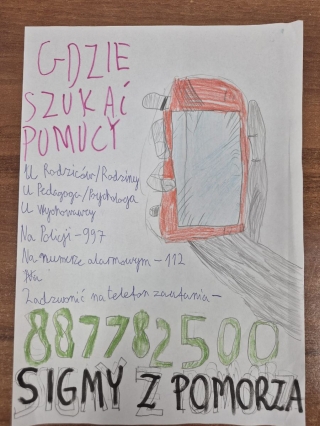 GDZIE
SZUKAĆ
POMOCY
U Rodziców/Rodziny
U Pedagoga/Psychologa
U Wychowawcy
Na Policji - 997
Na numerze alarmowym - 112
Zadzwonić na telefon zaufania -
887782500
SIGMY Z POMORZA